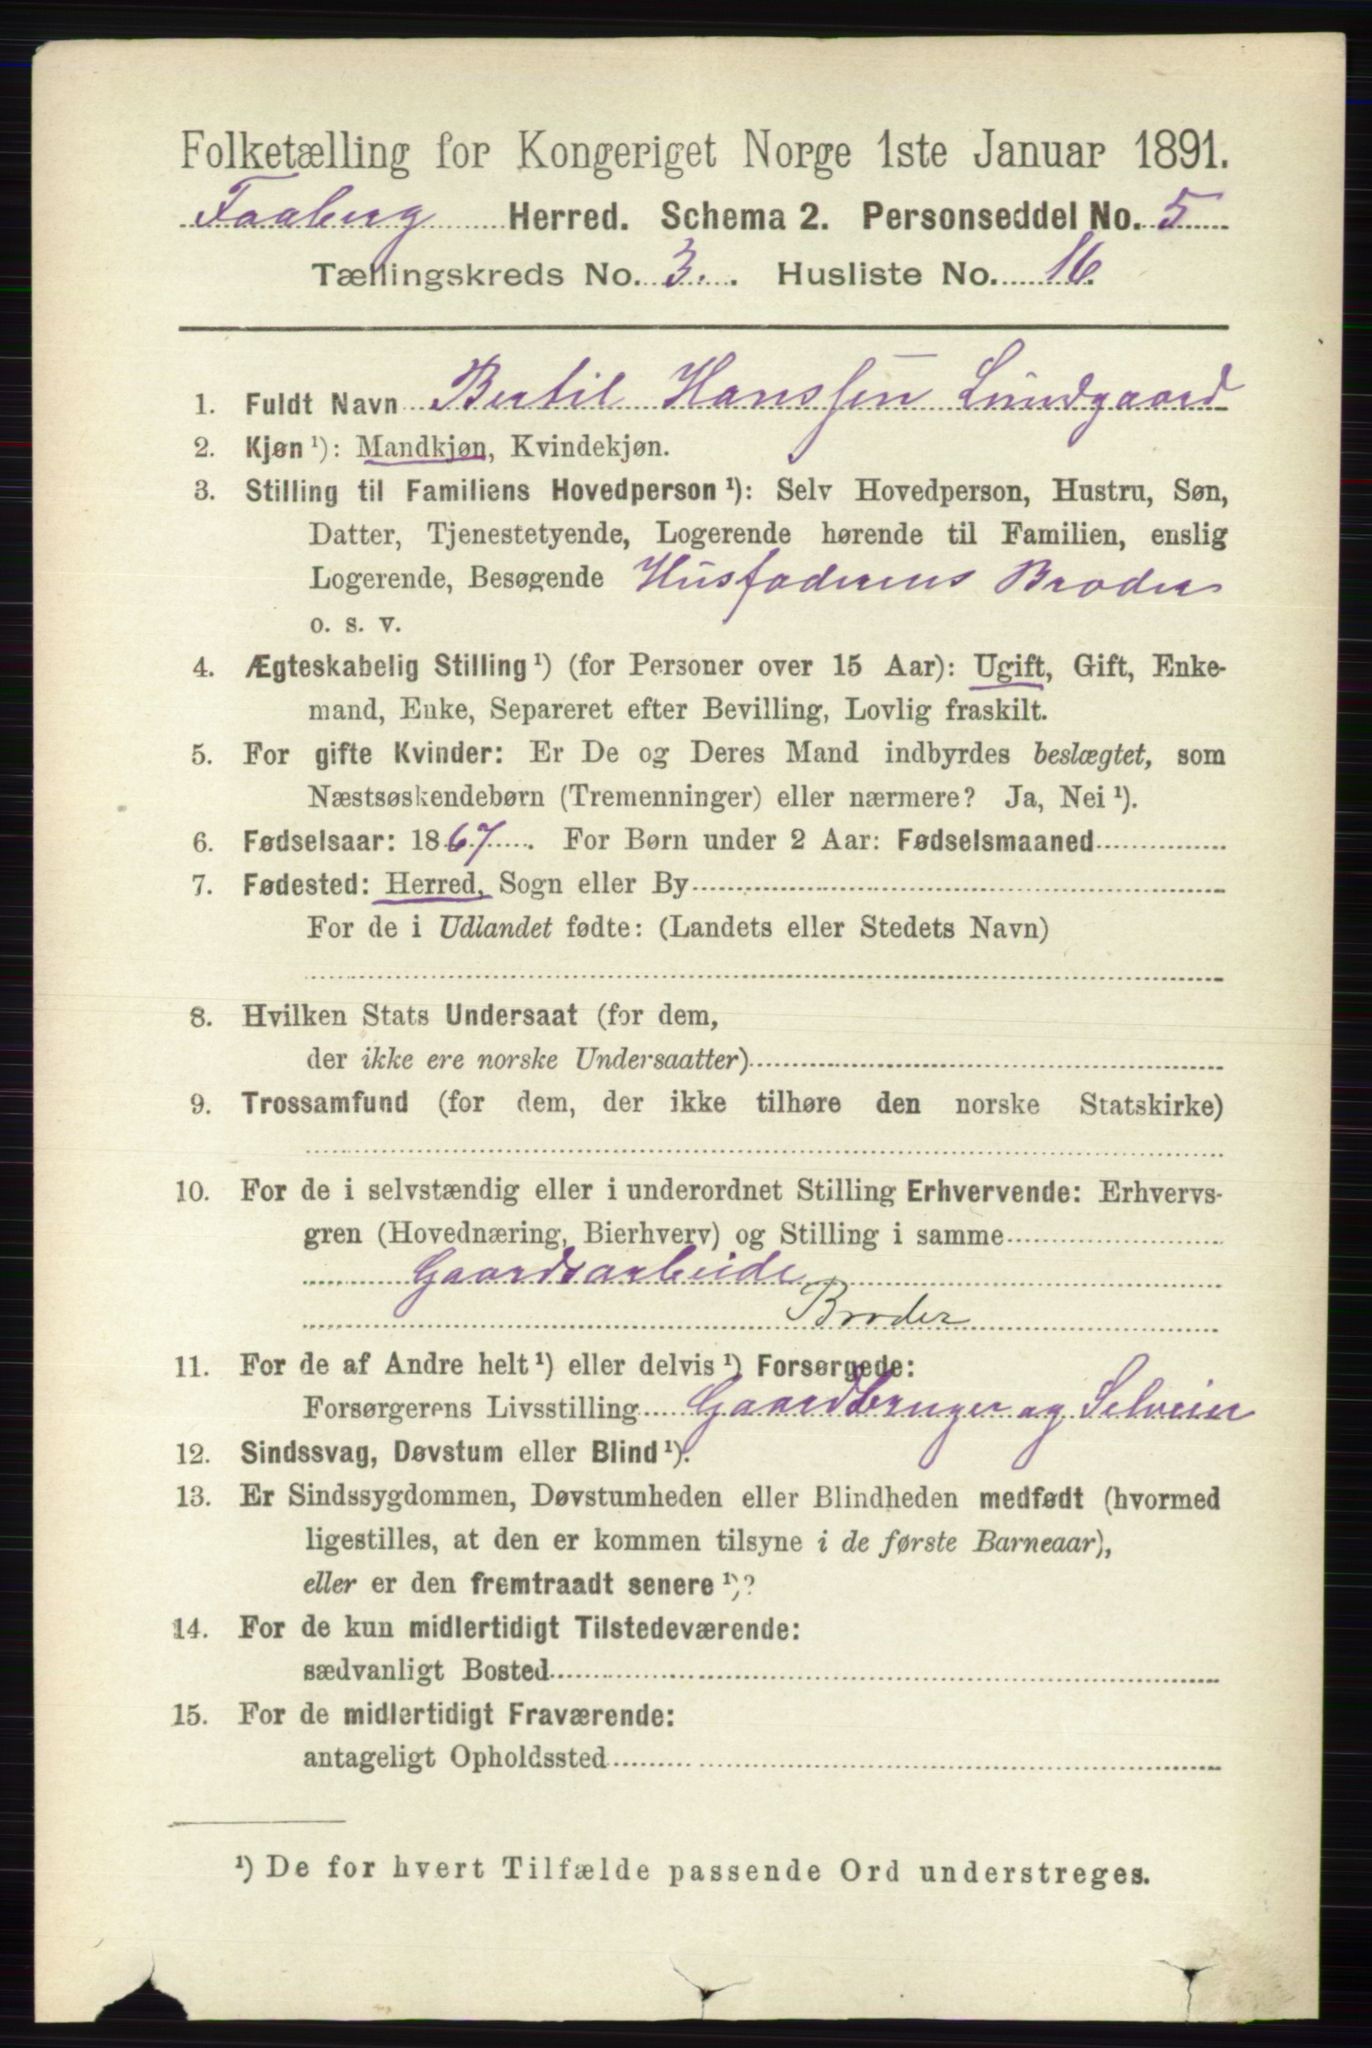 Folketælling for Kongeriget Norge 1ste Januar 1891.
Faaberg Herred. Schema 2. Personseddel No. 5
Tællingskreds No. 3. Husliste No. 16.
1. Fuldt Navn Bertil Hanssen Lundgaard
2. Kjøn ¹): Mandkjøn, Kvindekjøn.
3. Stilling til Familiens Hovedperson ¹): Selv Hovedperson, Hustru, Søn,
Datter, Tjenestetyende, Logerende hørende til Familien, enslig
Logerende, Besøgende Husfaderens Broder
o. s. v.
4. Ægteskabelig Stilling ¹) (for Personer over 15 Aar): Ugift, Gift, Enke-
mand, Enke, Separeret efter Bevilling, Lovlig fraskilt.
5. For gifte Kvinder: Er De og Deres Mand indbyrdes beslægtet, som
Næstsøskendebørn (Tremenninger) eller nærmere? Ja, Nei ¹).
6. Fødselsaar: 1867. For Børn under 2 Aar: Fødselsmaaned
7. Fødested: Herred, Sogn eller By
For de i Udlandet fødte: (Landets eller Stedets Navn)
8. Hvilken Stats Undersaat (for dem,
der ikke ere norske Undersaatter)
9. Trossamfund (for dem, der ikke tilhøre den norske Statskirke)
10. For de i selvstændig eller i underordnet Stilling Erhvervende: Erhvervs-
gren (Hovednæring, Bierhverv) og Stilling i samme
Gaardsarbeide
Broder
11. For de af Andre helt ¹) eller delvis ¹) Forsørgede:
Forsørgerens Livsstilling Gaardbruger og Selveier
12. Sindssvag, Døvstum eller Blind ¹).
13. Er Sindssygdommen, Døvstumheden eller Blindheden medfødt (hvormed
ligestilles, at den er kommen tilsyne i de første Barneaar),
eller er den fremtraadt senere ¹)?
14. For de kun midlertidigt Tilstedeværende:
sædvanligt Bosted
15. For de midlertidigt Fraværende:
antageligt Opholdssted
¹) De for hvert Tilfælde passende Ord understreges.